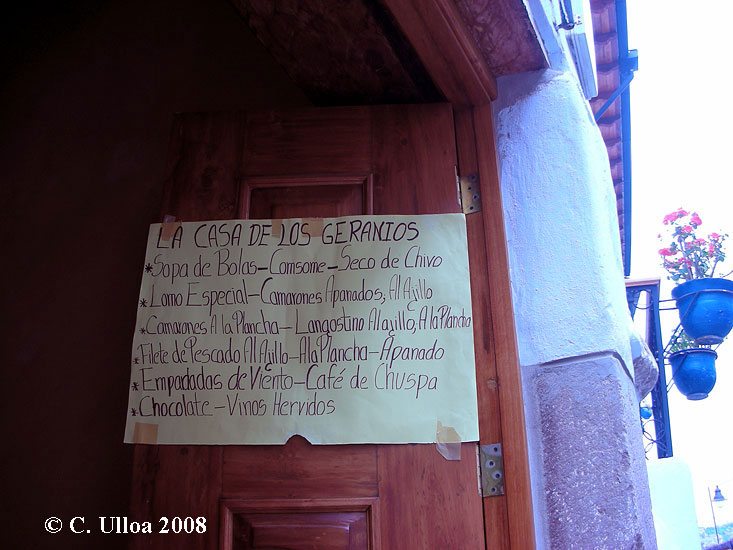 LA CASA DE LOS GERANIOS
*Sopa de Bolas-Comsome-Seco de Chivo
*Lomo Especial-Camarones Apanados, Al Ajillo
*Camarones A la Plancha-Langostino Al ajillo, A la Plancha
*Filete de Pescado Al Ajillo-A la Plancha-Apanado
*Empanadas de Viento-Café de Chuspa
*Chocolate-Vinos Hervidos
© C. Ulloa 2008